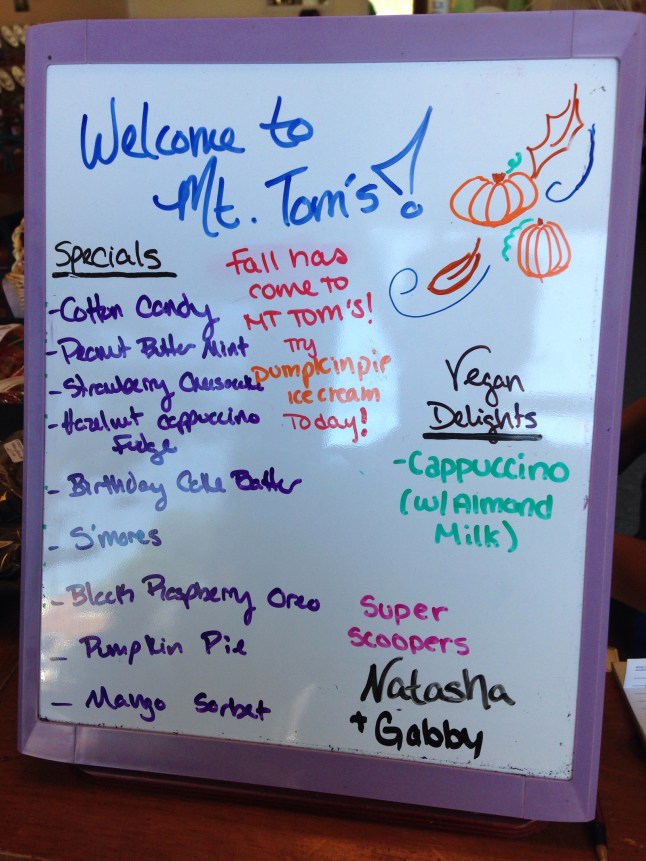 Welcome to
Mt. Tom's!
Specials
-Cotton Candy
-Peanut Butter Mint
-Strawberry Cheesecake
-Hazelnut cappuccino
Fudge
- Birthday Cake Batter
- S'mores
- Black Raspberry Oreo
- Pumpkin Pie
- Mango Sorbet
Fall has
come to
MT TOM'S!
Try
Pumpkin pie
ice cream
Today!
Vegan
Delights
-Cappuccino
(w/Almond
Milk)
Super
Scoopers
Natasha
+ Gabby